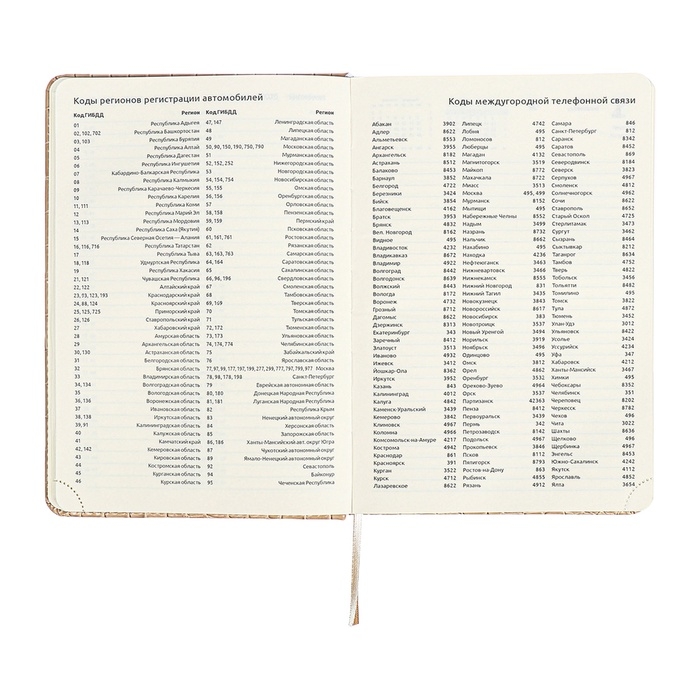 Коды регионов регистрации автомобилей
Код ГИБДД Регион
01 Республика Адыгея
02, 102, 702 Республика Башкортостан
03, 103 Республика Бурятия
04 Республика Алтай
05 Республика Дагестан
06 Республика Ингушетия
07 Кабардино-Балкарская Республика
08 Республика Калмыкия
09 Республика Карачаево-Черкесия
10 Республика Карелия
11, 111 Республика Коми
12 Республика Марий Эл
13, 113 Республика Мордовия
14 Республика Саха (Якутия)
15 Республика Северная Осетия — Алания
16, 116, 716 Республика Татарстан
17 Республика Тыва
18, 118 Удмуртская Республика
19 Республика Хакасия
21, 121 Чувашская Республика
22, 122 Алтайский край
23, 93, 123, 193 Краснодарский край
24, 88, 124 Красноярский край
25, 125, 725 Приморский край
26, 126 Ставропольский край
27 Хабаровский край
28 Амурская область
29 Архангельская область
30, 130 Астраханская область
31 Белгородская область
32 Брянская область
33 Владимирская область
34, 134 Волгоградская область
35 Вологодская область
36, 136 Воронежская область
37 Ивановская область
38, 138 Иркутская область
39, 91 Калининградская область
40 Калужская область
41 Камчатский край
42, 142 Кемеровская область
43 Кировская область
44 Костромская область
45 Курганская область
46 Курская область
Код ГИБДД Регион
47, 147 Ленинградская область
48 Липецкая область
49 Магаданская область
50, 90, 150, 190, 750, 790 Московская область
51 Мурманская область
52, 152, 252 Нижегородская область
53 Новгородская область
54, 154, 754 Новосибирская область
55, 155 Омская область
56, 156 Оренбургская область
57 Орловская область
58, 158 Пензенская область
59, 159 Пермский край
60 Псковская область
61, 161, 761 Ростовская область
62 Рязанская область
63, 163, 763 Самарская область
64, 164 Саратовская область
65 Сахалинская область
66, 96, 196 Свердловская область
67 Смоленская область
68 Тамбовская область
69, 169 Тверская область
70 Томская область
71 Тульская область
72, 172 Тюменская область
73, 173 Ульяновская область
74, 174, 774 Челябинская область
75 Забайкальский край
76 Ярославская область
77, 97, 99, 177, 197, 199, 277, 299, 777, 797, 799, 977 Москва
78, 98, 178, 198 Санкт-Петербург
79 Еврейская автономная область
80, 180 Донецкая Народная Республика
81, 181 Луганская Народная Республика
82 Республика Крым
83 Ненецкий автономный округ
84 Херсонская область
85 Запорожская область
86, 186 Ханты-Мансийский авт. округ Югра
87 Чукотский автономный округ
89 Ямало-Ненецкий автономный округ
92 Севастополь
94 Байконур
95 Чеченская Республика
Коды междугородной телефонной связи
Абакан 3902
Адлер 8622
Альметьевск 8553
Ангарск 3955
Архангельск 8182
Астрахань 8512
Балаково 8453
Барнаул 3852
Белгород 4722
Березники 3424
Бийск 3854
Благовещенск 4162
Братск 3953
Брянск 4832
Вел. Новгород 8162
Видное 495
Владивосток 4232
Владикавказ 8672
Владимир 4922
Волгоград 8442
Волгодонск 8639
Волжский 8443
Вологда 8172
Воронеж 4732
Грозный 8712
Дагомыс 8622
Дзержинск 8313
Екатеринбург 343
Заречный 8412
Златоуст 3513
Иваново 4932
Ижевск 3412
Йошкар-Ола 8362
Иркутск 3952
Казань 843
Калининград 4012
Калуга 4842
Каменск-Уральский 3439
Кемерово 3842
Клиновск 4967
Коломна 4966
Комсомольск-на-Амуре 4217
Кострома 4942
Краснодар 861
Красноярск 391
Курган 3522
Курск 4712
Лазаревское 8622
Липецк 4742
Лобня 495
Ломоносов 812
Люберцы 495
Магадан 4132
Магнитогорск 3519
Майкоп 8772
Махачкала 8722
Миасс 3513
Москва 495, 499
Мурманск 8152
Мытищи 495
Набережные Челны 8552
Надым 3499
Назрань 8732
Нальчик 8662
Нахабино 495
Находка 4236
Нефтеюганск 3463
Нижневартовск 3466
Нижнекамск 8555
Нижний Новгород 831
Нижний Тагил 3435
Новокузнецк 3843
Новороссийск 8617
Новосибирск 383
Новотроицк 3537
Новый Уренгой 3494
Норильск 3919
Ноябрьск 3496
Одинцово 495
Омск 3812
Орел 4862
Оренбург 3532
Орехово-Зуево 4964
Орск 3537
Партизанск 42363
Пенза 8412
Первоуральск 3439
Пермь 342
Петрозаводск 8142
Подольск 4967
Прокопьевск 3846
Псков 8112
Пятигорск 8793
Ростов-на-Дону 863
Рыбинск 4855
Рязань 4912
Самара 846
Санкт-Петербург 812
Саранск 8342
Саратов 8452
Севастополь 869
Северодвинск 8184
Северск 3823
Серпухов 4967
Смоленск 4812
Солнечногорск 4962
Сочи 8622
Ставрополь 8652
Старый Оскол 4725
Стерлитамак 3473
Сургут 3462
Сызрань 8464
Сыктывкар 8212
Таганрог 8634
Тамбов 4752
Тверь 4822
Тобольск 3456
Тольятти 8482
Томилино 495
Томск 3822
Тула 4872
Тюмень 3452
Улан-Удэ 3012
Ульяновск 8422
Усолье 3424
Уссурийск 4234
Уфа 347
Хабаровск 4212
Ханты-Мансийск 3467
Химки 495
Чебоксары 8352
Челябинск 351
Череповец 8202
Черкесск 8782
Чехов 496
Чита 3022
Шахты 8636
Щелково 496
Щербинка 4967
Энгельс 8453
Южно-Сахалинск 4242
Якутск 4112
Ярославль 4852
Ялта 3654